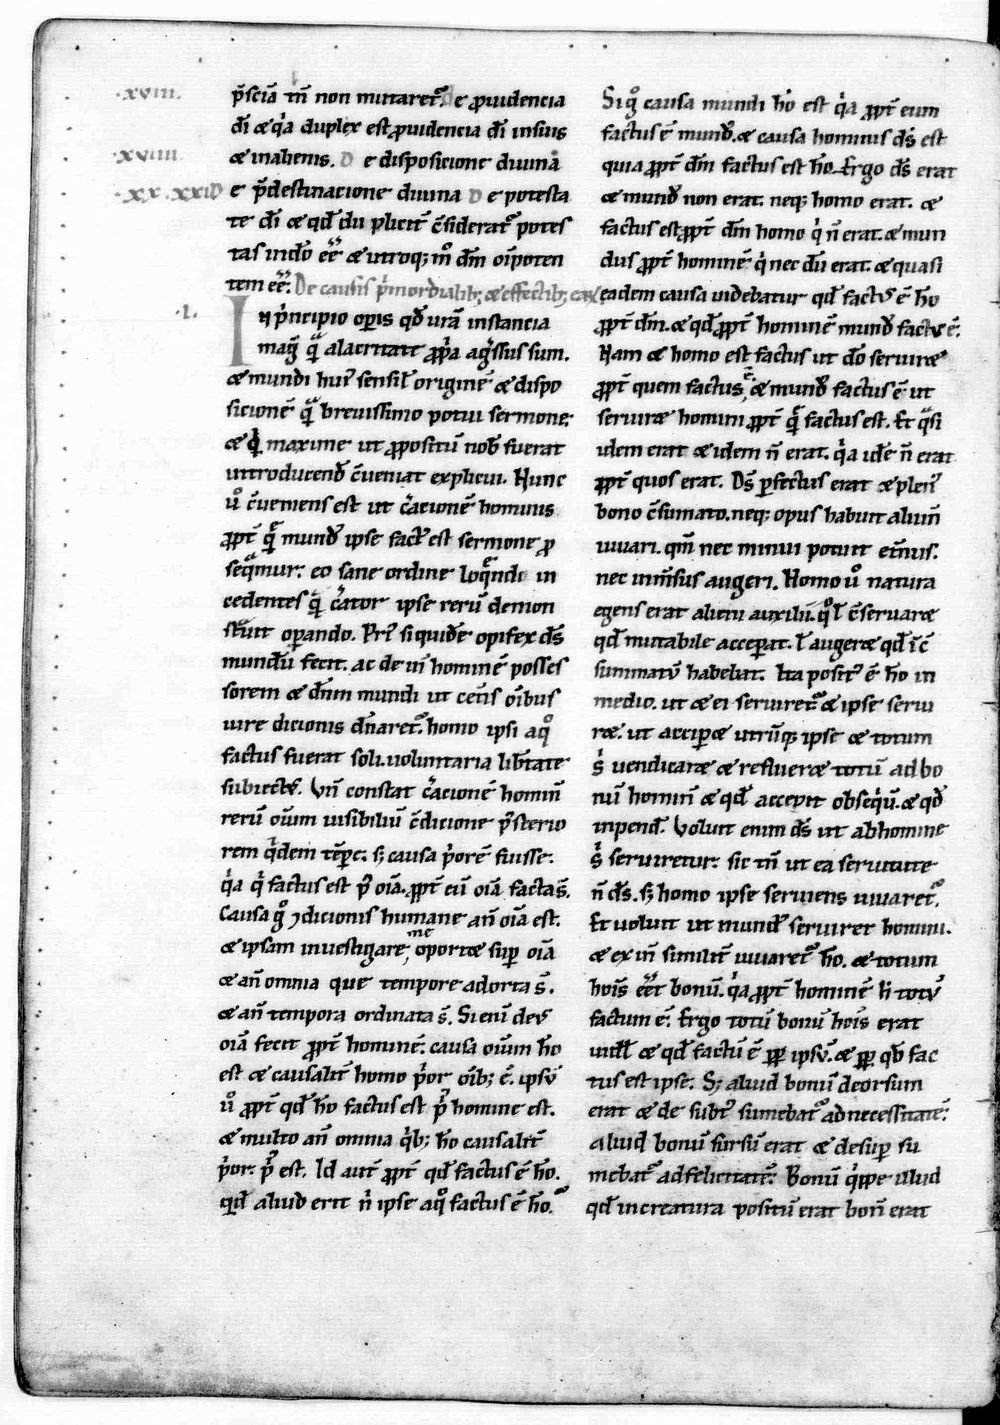 .xviii.
p̄sciā tn̄ non mutaret᷑. De ꝓuidencia
dī & q̇a duplex est ꝓuidencia dī insuis
.xviiii.
& inalienis. De disposicione diuina
.xx. .xxi.
De p̄destinacione diuina De potesta
te dī & qd̄ du plicit̄ c̄siderat᷑ potes
tas indō eē & utroq; mō dm̄ oīpoten
tem eē. De causis p̄mordialib; & effectib; eaꝝ
.I.
In ṗncipio oꝑis qd̄ urā instancia
maḡ q̄ alacritate ꝓp̄a ag̃ssus sum.
& mundi huı᷒ sensil̄ originē & dispo
sicionē q̄ breuissimo potui sermone.
& q̇ maxime ut ꝓpositū nob̄ fuerat
introducend̄ c̄ueniat explicui. Nunc
u̇ c̄ueniens est ut c̃acionē hominis
ꝓpt̄ q̄ mund᷒ ipse fact᷒ est sermone ꝓ
seq̄mur. eo sane ordine loq̄ndi in
cedentes q̄ c̃ator ipse rerū demon
st̃uit oꝑando. Pri᷒ siquidē opifex ds̄
mundū fecit. ac deīn hominē posses
sorem & dn̄m mundi ut cet̄is oībus
iure dicionis dn̄aret᷑. homo ipsi aq̊
factus fuerat soli. uoluntaria lib̄tate
subiect᷒. Vn̄ constat c̃acionē hominis
rerū oīum uisibiliū c̄dicione posterio
rem q̇dem tēpe. s; causa ṗorē fuisse.
q̇a ꝓpt̄ eū oīa facta s̄.
Causa g̊ ꝯdicionis humane an̄ oīa est.
& ipsam inuestigare me oport& suꝑ oīa
& an̄ omnia que tempore adorta s̄.
& an̄ tempora ordinata s̄. Si enī deus
oīa fecit ꝓpt̄ hominē. causa oīum hō
est & causalit̄ homo ṗor oīb; ē. ipsū
u̇ ꝓpt̄ qd̄ hō factus est ṗ homine est.
& multo an̄ omnia q̇b; hō causalit̄
ṗor. ṗ est. Id aut̄ ꝓpt̄ qd̄ factus ē hō.
qd̄ aliud erit n̄ ipse aq̊ factus ē hō.
Si g̊ causa mundi hō est q̇a ꝓpt̄ eum
factus ē mund᷒. & causa hominis ds̄ est
quia ꝓpt̄ dm̄ factus est hō. Ergo ds̄ erat
& mund᷒ non erat. neq; homo erat. &
factus est ꝓpt̄ dm̄ homo q̇ n̄ erat. & mun
dus ꝓpt̄ hominē q̇ nec dū erat. & quasi
eadem causa uidebatur qd̄ fact᷒ ē hō
ꝓpt̄ dm̄. & qd̄ ꝓpt̄ hominē mund᷒ factus ē.
Nam & homo est factus ut dō seruir&
ꝓpt̄ quem factus ē. & mund᷒ factus ē ut
seruir& homini ꝓpt̄ q̄ factus est. Et q̄si
idem erat & idem n̄ erat. q̇a idē n̄ erat
ꝓpt̄ quos erat. Ds̄ ꝑfectus erat & plen᷒
bono c̄sumato. neq; opus habuit aliun̄
iuuari. qm̄ nec minui potuit et̄nus.
nec inm̄sus augeri. Homo u̇ natura
egens erat alieni auxilii. q̊ l̄ c̄seruar&
qd̄ mutabile acceꝑat. l̄ auger& qd̄ īc̄
summatū habebat. Ita posit᷒ ē hō in
medio. ut & ei seruiret᷑ & ipse serui
r&. ut acciꝑ& utrūq; ipse & totum
s̄ uendicar& & reflueret totū ad bo
nū hominis & qd̄ accepit obsequiū. & qd̄
inpend̄. Voluit enim ds̄ ut ab homine
s̄ seruiretur. sic tn̄ ut ea seruitute
n̄ ds̄. s; homo ipse seruiens iuuaret᷑.
Et uoluit ut mundus seruiret homini.
& exīn similit̄ iuuaret᷑ hō. & totum
hoīs eēt bonū. q̇a ꝓpt̄ hominē h̄ totū
factum ē. Ergo totū bonū hoīs erat
& qd̄ factū ē ꝓpt̄ ipsū. & ꝓpt̄ qd̄ fac
tus est ipse. S; aliud bonū deorsum
erat & de subt᷒ sumebat᷑ ad necessitatē.
aliud bonū sursū erat & desuꝑ su
mebat᷑ ad felicitatē. Bonū q̇ppe illud
qd̄ increatura positū erat bonū erat